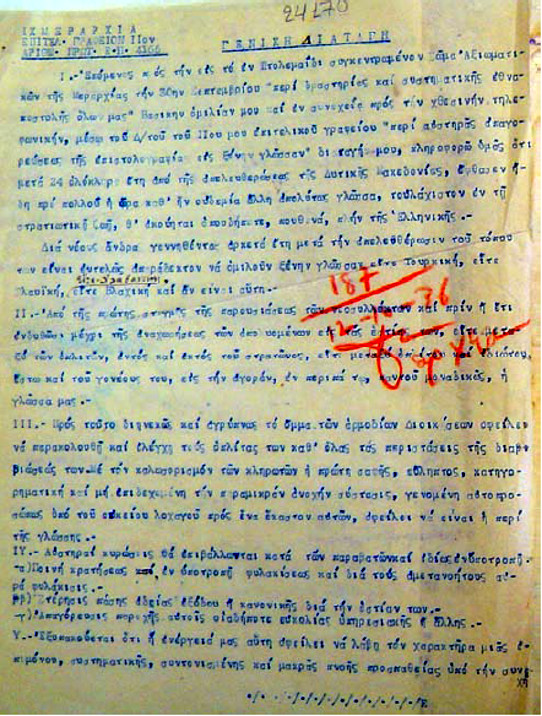 24170
ΙΧ ΜΕΡΑΡΧΙΑ
ΕΠΙΤΕΛ· ΓΡΑΦΕΙΟΝ ΙΙον
ΑΡΙΘΜ· ΠΡΩΤ· Ε·Π· 4366
ΓΕΝΙΚΗ ΔΙΑΤΑΓΗ
Ι.- Ἑπόμενος πρὸς τὴν εἰς τὸ ἐν Πτολεμαΐδι συγκεντραμένον Σῶμα Ἀξιωματι-
κῶν τῆς Μεραρχίας τὴν 30ην Σεπτεμβρίου "περὶ δραστηρίας καὶ συστηματικῆς ἐθνι-
κοστολῆς ὅλων μας" βασικὴν ὁμιλίαν μου καὶ ἐν συνεχείᾳ πρὸς τὴν χθεσινὴν τηλε-
φωνικήν, μέσῳ τοῦ Δ/τοῦ τοῦ ΙΙου μου ἐπιτελικοῦ γραφείου "περὶ αὐστηρᾶς ἀπαγο-
ρεύσεως τῆς ἐπιστολογραφίας εἰς ξένην γλῶσσαν" διαταγήν μου, πληροφορῶ ὑμᾶς ὅτι
μετὰ 24 ὁλόκληρα ἔτη ἀπὸ τῆς ἀπελευθερώσεως τῆς Δυτικῆς Μακεδονίας, ἔφθασεν ἤ-
δη πρὸ πολλοῦ ἡ ὥρα καθ' ἣν οὐδεμία ἄλλη ἀπολύτως γλῶσσα, τοὐλάχιστον ἐν τῇ
στρατιωτικῇ ζωῇ, θ' ἀκούηται ὁπουδήποτε, πουθενά, πλὴν τῆς Ἑλληνικῆς.-
Διὰ νέους ἄνδρας γεννηθέντας ἀρκετὰ ἔτη μετὰ τὴν ἀπελευθέρωσιν τοῦ τόπου
των εἶναι ἐντελῶς ἀπαράδεκτον νὰ ὁμιλοῦν ξένην γλῶσσαν, εἴτε Τουρκική, εἴτε
Σλαυϊκή, εἴτε Βλαχικὴ καὶ ἂν εἶναι αὕτη.-
ΙΙ.- Ἀπὸ τῆς πρώτης στιγμῆς τῆς παρουσιάσεως τῶν νεοσυλλέκτων καὶ πρὶν ἢ ἔτι
ἐνδυθῶσι μέχρι τῆς ἀναχωρήσεως τῶν ἀπολυομένων εἰς τὰς ἑστίας των, εἴτε μετα-
ξὺ τῶν ὁπλιτῶν, ἐντὸς καὶ ἐκτὸς τοῦ στρατῶνος, εἴτε μεταξὺ ὁπλίτου καὶ ἰδιώτου,
ἔστω καὶ τοῦ γονέως του, εἰς τὴν ἀγοράν, ἐν περιπάτῳ, παντοῦ μοναδικῶς, ἡ
γλῶσσα μας.-
187
12-10-36
ΙΙΙ.- Πρὸς τοῦτο διηνεκῶς καὶ ἀγρύπνως τὸ ὄμμα τῶν ἁρμοδίων Διοικήσεων ὀφείλει
νὰ παρακολουθῇ καὶ ἐλέγχῃ τοὺς ὁπλίτας των καθ' ὅλας τὰς περιστάσεις τῆς διαβι-
βιώσεώς των. Μὲ τὸν καλωσορισμὸν τῶν κληρωτῶν ἡ πρώτη σαφής, εὔληπτος, κατηγο-
ρηματικὴ καὶ μὴ ἐπιδεχομένη τὴν παραμικρὰν ἀνοχὴν σύστασις, γενομένη αὐτοπρο-
σώπως ὑπὸ τοῦ οἰκείου λοχαγοῦ πρὸς ἕνα ἕκαστον αὐτῶν, ὀφείλει νὰ εἶναι ἡ περὶ
τῆς γλώσσης.-
ΙΥ.- Αὐστηραὶ κυρώσεις θὰ ἐπιβάλλωνται κατὰ τῶν παραβατῶν καὶ ἰδίως ἐν ὑποτροπῇ.-
-α) Ποινὴ κρατήσεως καὶ, ἐν ὑποτροπῇ φυλακίσεως καὶ διὰ τοὺς ἀμετανοήτους αὐ-
ρὰ φυλάκισις.-
-β) Στέρησις πάσης ἀδείας ἐξόδου ἢ κανονικῆς διὰ τὴν ἑστίαν των.-
-γ) Ἀπαγόρευσις παροχῆς αὐτοῖς οἱασδήποτε εὐκολίας ὑπηρεσιακῆς ἢ ἄλλης.-
Υ.- Ἐξυπακούεται ὅτι ἡ ἐνέργειά μας αὕτη ὀφείλει νὰ λάβῃ τὸν χαρακτῆρα μιᾶς ἐ-
πιμόνου, συστηματικῆς, συντονισμένης καὶ μακρᾶς πνοῆς προσπαθείας ὑπὸ τὴν συνε-
χῆ